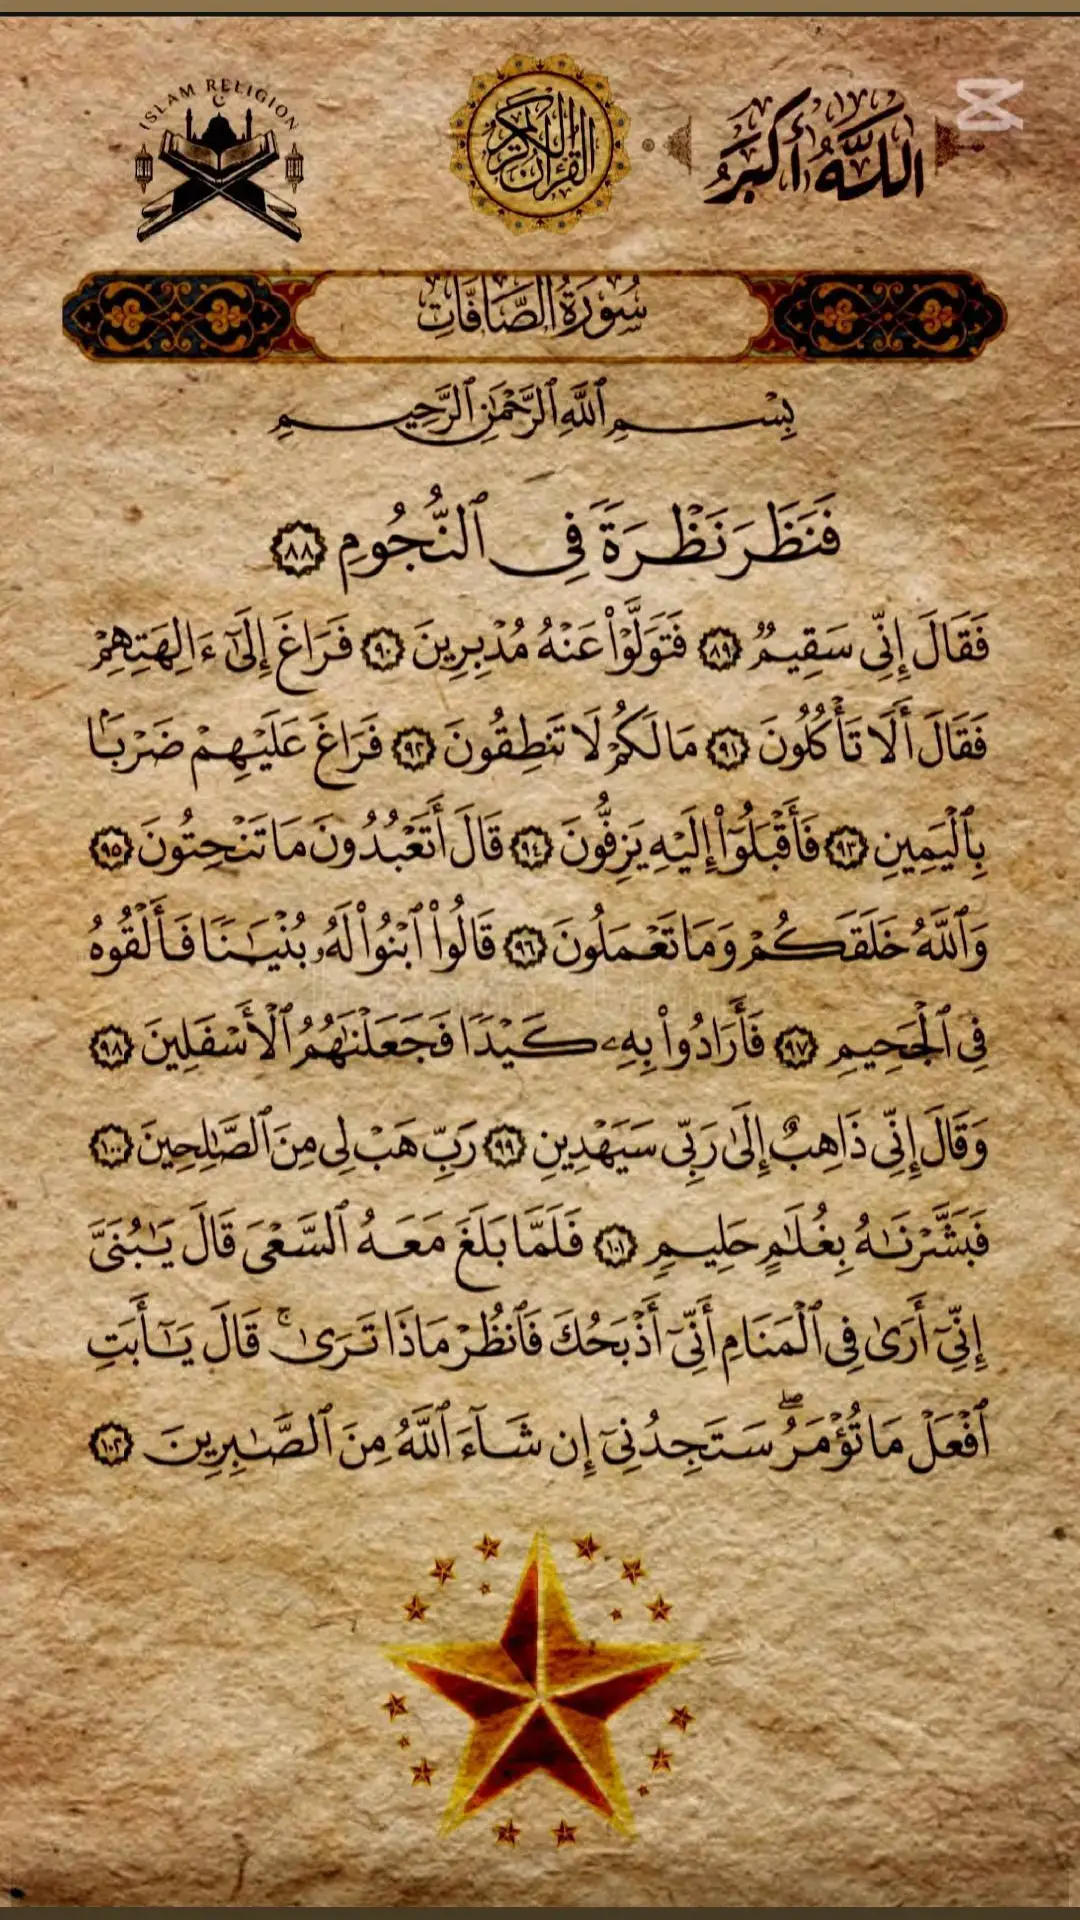 ISLAM RELIGION
القرآن الكريم
اللَّهُ أَكْبَرُ
سُورَةُ الصَّافَّاتِ
بِسْمِ ٱللَّهِ ٱلرَّحْمَٰنِ ٱلرَّحِيمِ
فَنَظَرَ نَظْرَةً فِى ٱلنُّجُومِ ٨٨
فَقَالَ إِنِّى سَقِيمٌ ٨٩ فَتَوَلَّوْا۟ عَنْهُ مُدْبِرِينَ ٩٠ فَرَاغَ إِلَىٰٓ ءَالِهَتِهِمْ
فَقَالَ أَلَا تَأْكُلُونَ ٩١ مَا لَكُمْ لَا تَنطِقُونَ ٩٢ فَرَاغَ عَلَيْهِمْ ضَرْبًۢا
بِٱلْيَمِينِ ٩٣ فَأَقْبَلُوٓا۟ إِلَيْهِ يَزِفُّونَ ٩٤ قَالَ أَتَعْبُدُونَ مَا تَنْحِتُونَ ٩٥
وَٱللَّهُ خَلَقَكُمْ وَمَا تَعْمَلُونَ ٩٦ قَالُوا۟ ٱبْنُوا۟ لَهُۥ بُنْيَٰنًا فَأَلْقُوهُ
فِى ٱلْجَحِيمِ ٩٧ فَأَرَادُوا۟ بِهِۦ كَيْدًا فَجَعَلْنَٰهُمُ ٱلْأَسْفَلِينَ ٩٨
وَقَالَ إِنِّى ذَاهِبٌ إِلَىٰ رَبِّى سَيَهْدِينِ ٩٩ رَبِّ هَبْ لِى مِنَ ٱلصَّٰلِحِينَ ١٠٠
فَبَشَّرْنَٰهُ بِغُلَٰمٍ حَلِيمٍ ١٠١ فَلَمَّا بَلَغَ مَعَهُ ٱلسَّعْىَ قَالَ يَٰبُنَىَّ
إِنِّىٓ أَرَىٰ فِى ٱلْمَنَامِ أَنِّىٓ أَذْبَحُكَ فَٱنظُرْ مَاذَا تَرَىٰ ۚ قَالَ يَٰٓأَبَتِ
ٱفْعَلْ مَا تُؤْمَرُ ۖ سَتَجِدُنِىٓ إِن شَآءَ ٱللَّهُ مِنَ ٱلصَّٰبِرِينَ ١٠٢